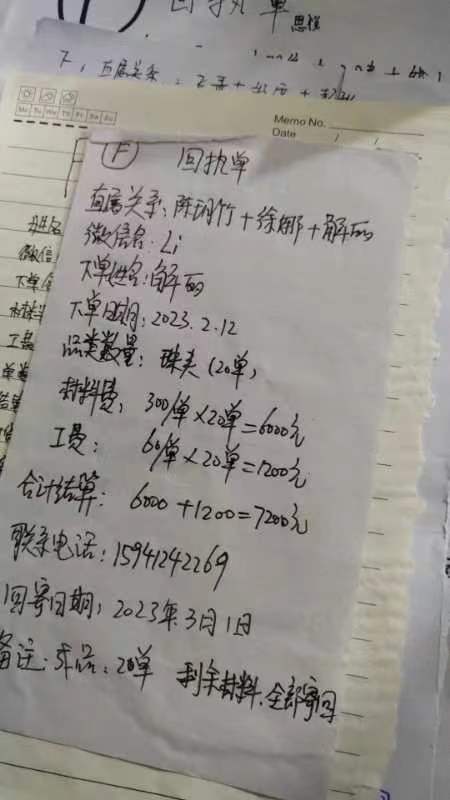 回执单
思强
Memo No.
Date / /
Mo Tu We Th Fr Sa Su
F 回执单
直属关系：陈羽竹+徐娜+解丽
微信名：Li
下单姓名：解丽
下单日期：2023.2.12
品类数量：珠夹（20单）
材料费：300/单×20单=6000元
工费：60/单×20单=1200元
合计结算：6000+1200=7200元
联系电话：15941242269
回寄日期：2023年3月1日
备注：成品：20单 剩余材料，全部寄回